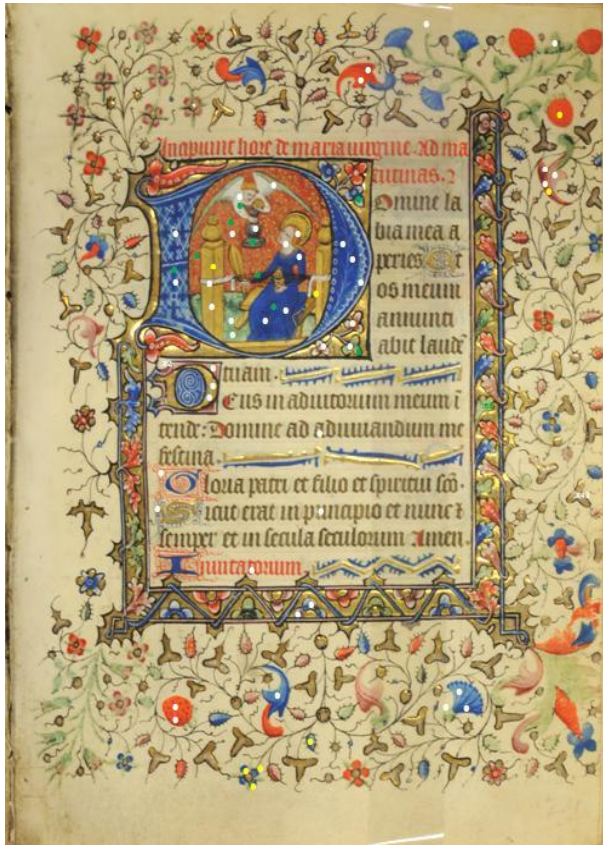 Incipiunt hore de maria uirgine. Ad ma
tutinas.
Domine la
bia mea a
peries Et
os meum
annunti
abit laudē
tuam.
Deus in adiutorium meum ī
tende: Domine ad adiuuandum me
festina.
Gloria patri et filio et spiritui scō.
Sicut erat in principio et nunc ⁊
semper et in secula seculorum Amen.
Inuitatorium